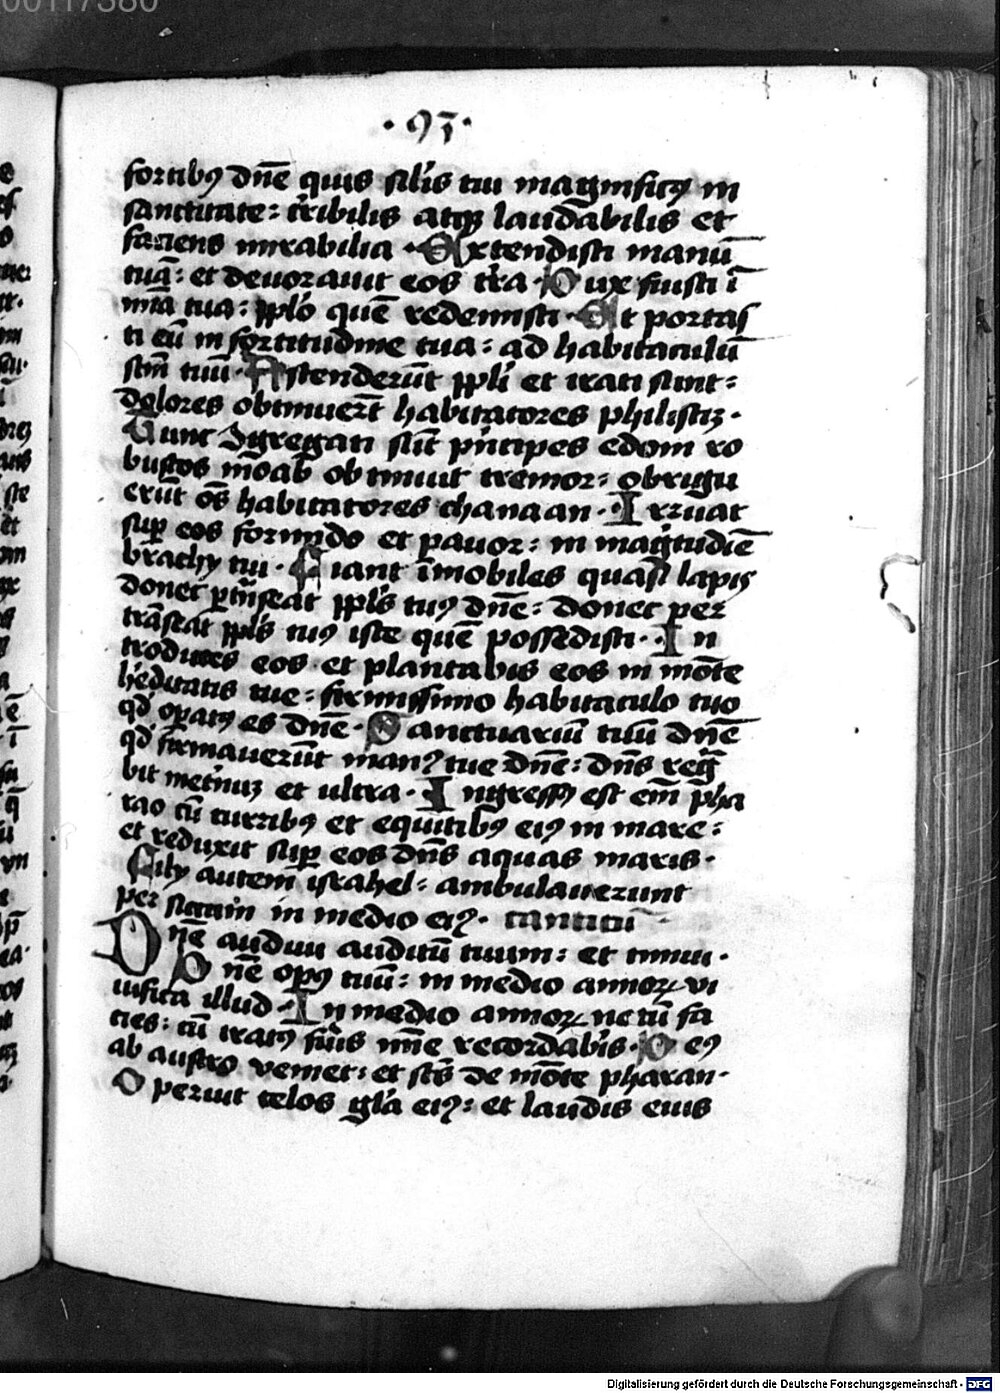 00117380
·93·
fortibꝰ dn̄e quis sil̓is tui magnificꝰ in
sanctitate: t̓ribilis atqꝫ laudabilis et
faciens mirabilia · Extendisti manū
tuā: et devorauit eos t̓ra · Dux fuisti ī
mīa tua: ppl̓o quē redemisti · Et portas
ti eū in fortitudine tua: ad habitaculū
scm̄ tuū · Ascenderūt ppl̓i et irati sunt:
dolores obtinuer̄t habitatores philistiꝫ·
Tunc ꝯgregati sūt pn̓cipes edom ro
bustos moab obtinuit tremor: obrigu
erūt oēs habitatores chanaan · Irruat
suꝑ eos formido et pavor: in mag̓tudīe
brachy tui · Fiant īmobiles quasi lapis
donec ꝑtn̄seat ppl̓s tuꝰ dn̄e: donec per
trāseat ppl̓s tuꝰ iste quē possedisti · In
troduces eos et plantabis eos in mōte
h̓editatis tue: firmissimo habitaculo tuo
qd̓ oꝑatꝰ es dn̄e · Sanctuariū tuū dn̄e
qd̓ firmauerūt manꝰ tue dn̄e: dn̄s reḡ
bit in et̓nuꝫ et ultra · Ingressꝰ est em̄ pha
rao cū curribꝰ et equitibꝰ eiꝰ in mare:
et reduxit suꝑ eos dn̄s aquas maris·
Fily autem israhel: ambulauerunt
per siccum in medio eiꝰ· canticū
Dn̄e audiui auditū tuum: et timui·
Dn̄e opꝰ tuū: in medio annoꝝ vi
uifica illud · In medio annoꝝ notū fa
cies: cū iratꝰ fu̓is mīe recordab̓is · Deꝰ
ab austro veniet: et scs̄ de mōte pharan·
Operuit celos gl̓a eiꝰ: et laudis eius
Digitalisierung gefördert durch die Deutsche Forschungsgemeinschaft - DFG